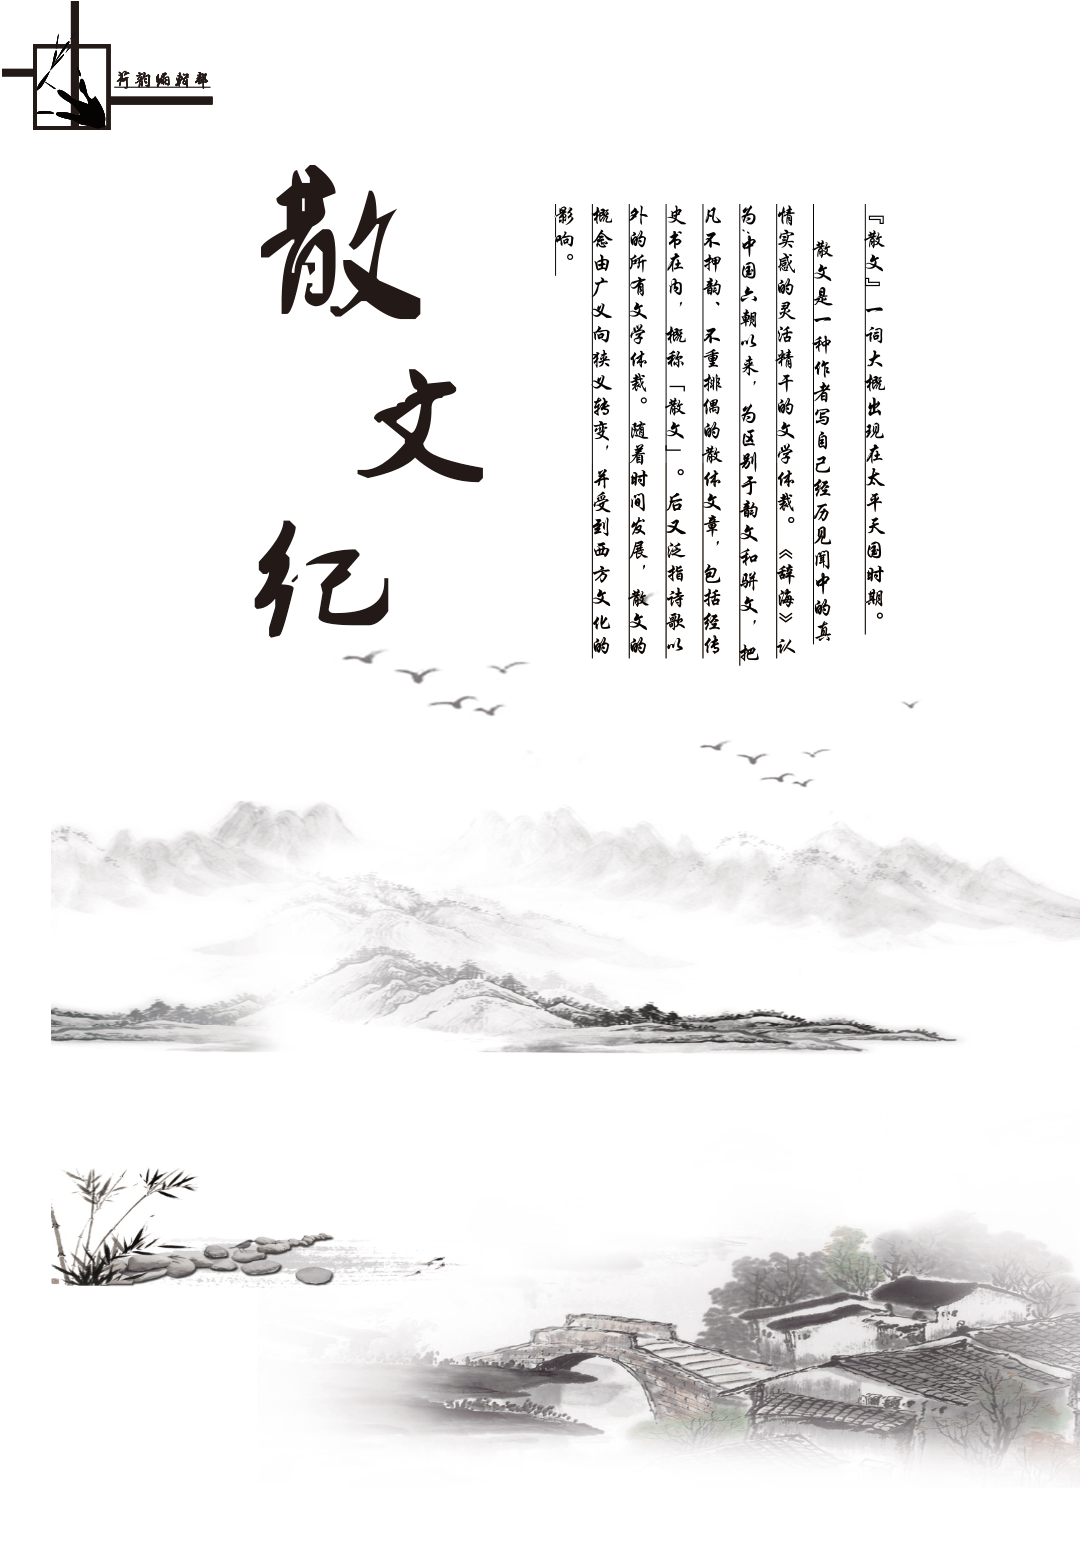 荷韵编辑部
散
文
纪
『散文』一词大概出现在太平天国时期。
散文是一种作者写自己经历见闻中的真
情实感的灵活精干的文学体裁。《辞海》认
为:中国六朝以来，为区别于韵文和骈文，把
凡不押韵、不重排偶的散体文章，包括经传
史书在内，概称「散文」。后又泛指诗歌以
外的所有文学体裁。随着时间发展，散文的
概念由广义向狭义转变，并受到西方文化的
影响。